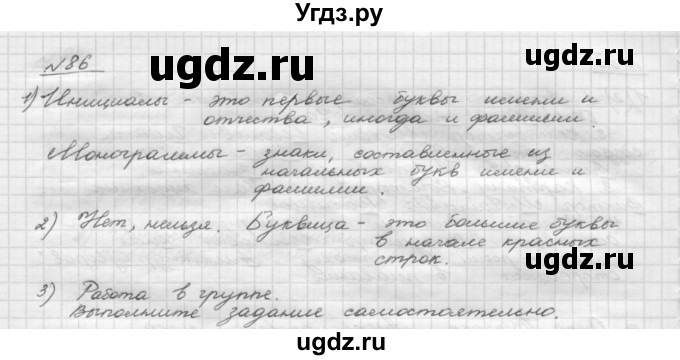 Угдз.ру
№86
ugdz.ru ugdz.ru
1) Инициалы - это первые буквы имени и
отчества, иногда и фамилии.
ugdz.ru
Монограммы - знаки, составленные из
начальных букв имени и
фамилии.
ugdz.ru ugdz.ru
2) Нет, нельзя. Буквица - это большие буквы
в начале красных
строк.
ugdz.ru
3) Работа в группе.
Выполните задание самостоятельно.
ugdz.ru